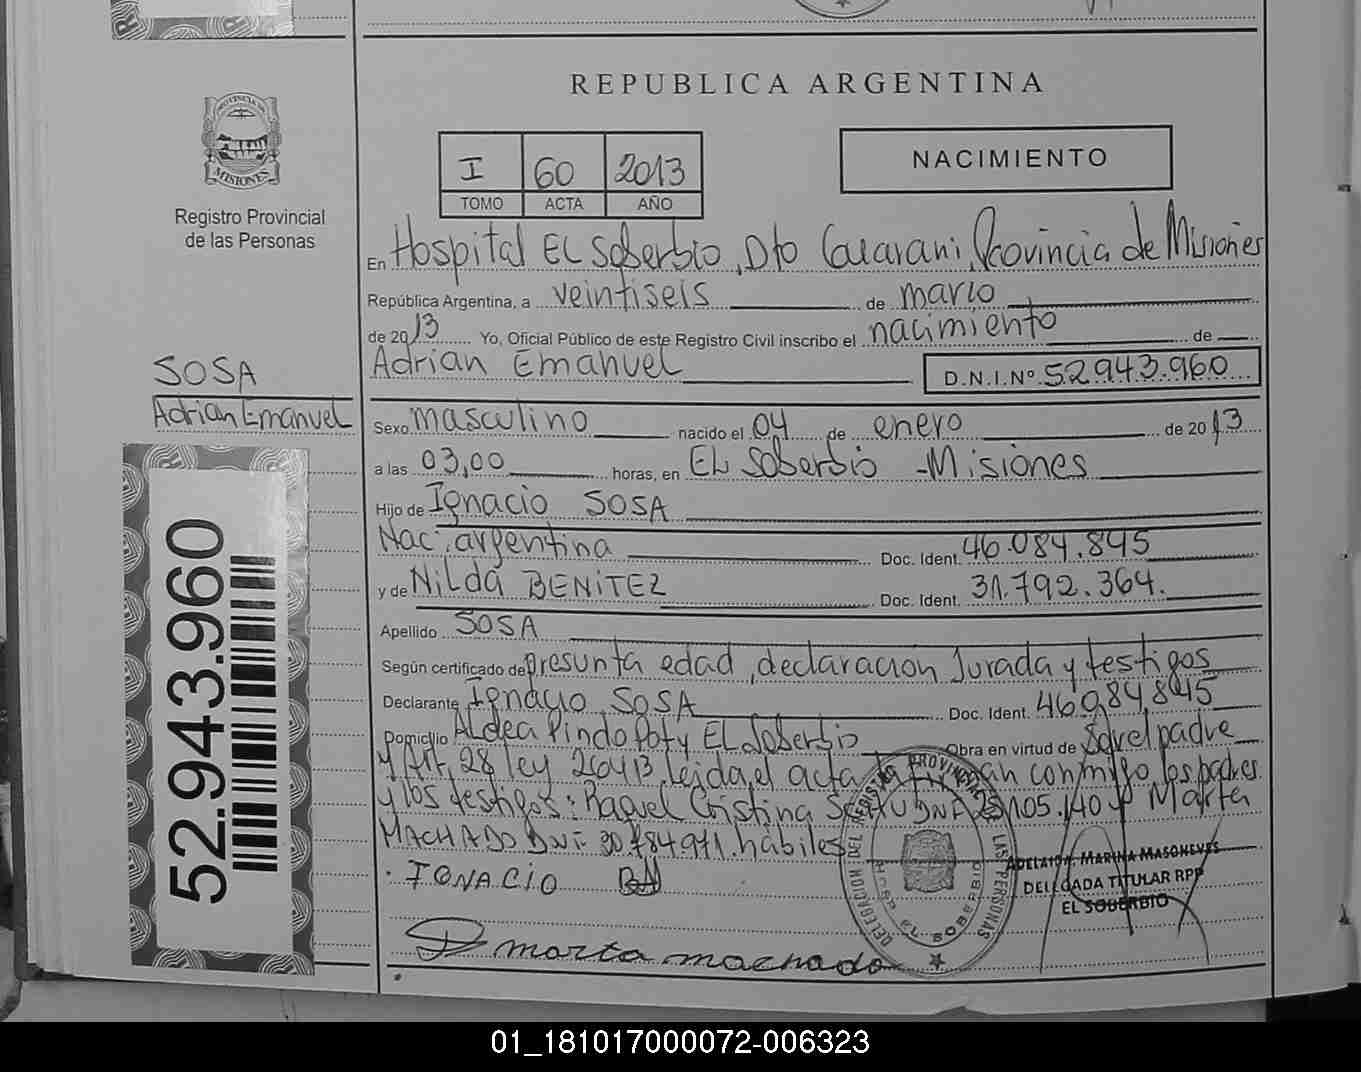 REPUBLICA ARGENTINA
PROVINCIA DE
MISIONES
Registro Provincial
de las Personas
I 60 2013
TOMO ACTA AÑO
NACIMIENTO
En Hospital EL Soberbio, Dto Guarani, Provincia de Misiones
República Argentina, a veintiseis de marzo
de 2013 Yo, Oficial Público de este Registro Civil inscribo el nacimiento de
Adrian Emanuel D.N.I.Nº 52.943.960
SOSA
Adrian Emanuel
Sexo masculino nacido el 04 de enero de 2013
a las 03,00 horas, en EL Soberbio - Misiones
Hijo de Ignacio SOSA
Nac: argentina Doc. Ident. 46.084.845
y de Nilda BENITEZ Doc. Ident. 31.792.364.
Apellido SOSA
Según certificado de presunta edad, declaración Jurada y testigos
Declarante Ignacio SOSA Doc. Ident. 46.084.845
Domicilio Aldea Pindo Poty EL Soberbio Obra en virtud de ser el padre
y Art. 28 ley 26413 leida el acta la firman conmigo los padres
y los testigos: Raquel Cristina DNI 105.140 y Marta
MACHADO DNI: 971. hábiles
IGNACIO
marta machado
52.943.960
DELEGACION DEL REGISTRO PROVINCIAL LAS PERSONAS
EL SOBERBIO
MARINA MASONEVES
DELEGADA TITULAR RPP
EL SOBERBIO
01_181017000072-006323